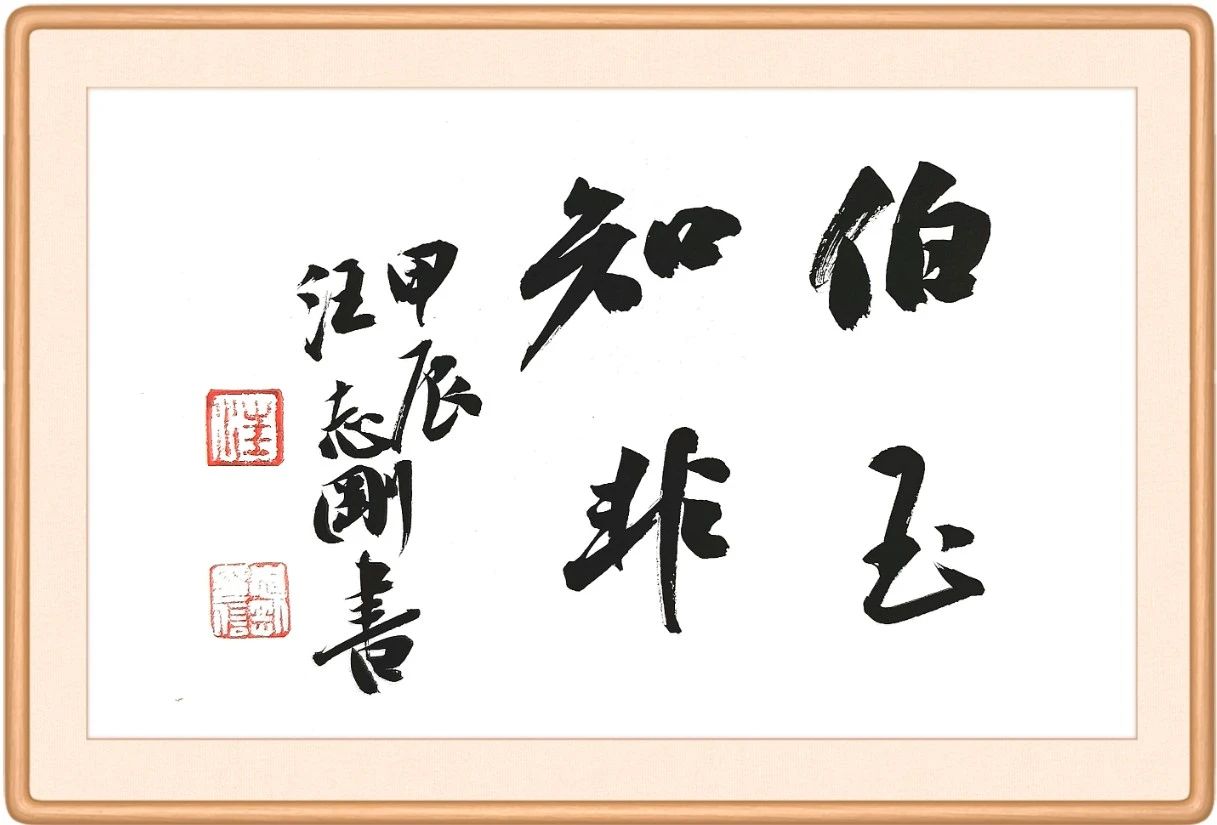 伯玉
知非
甲辰
汪志剛書
汪